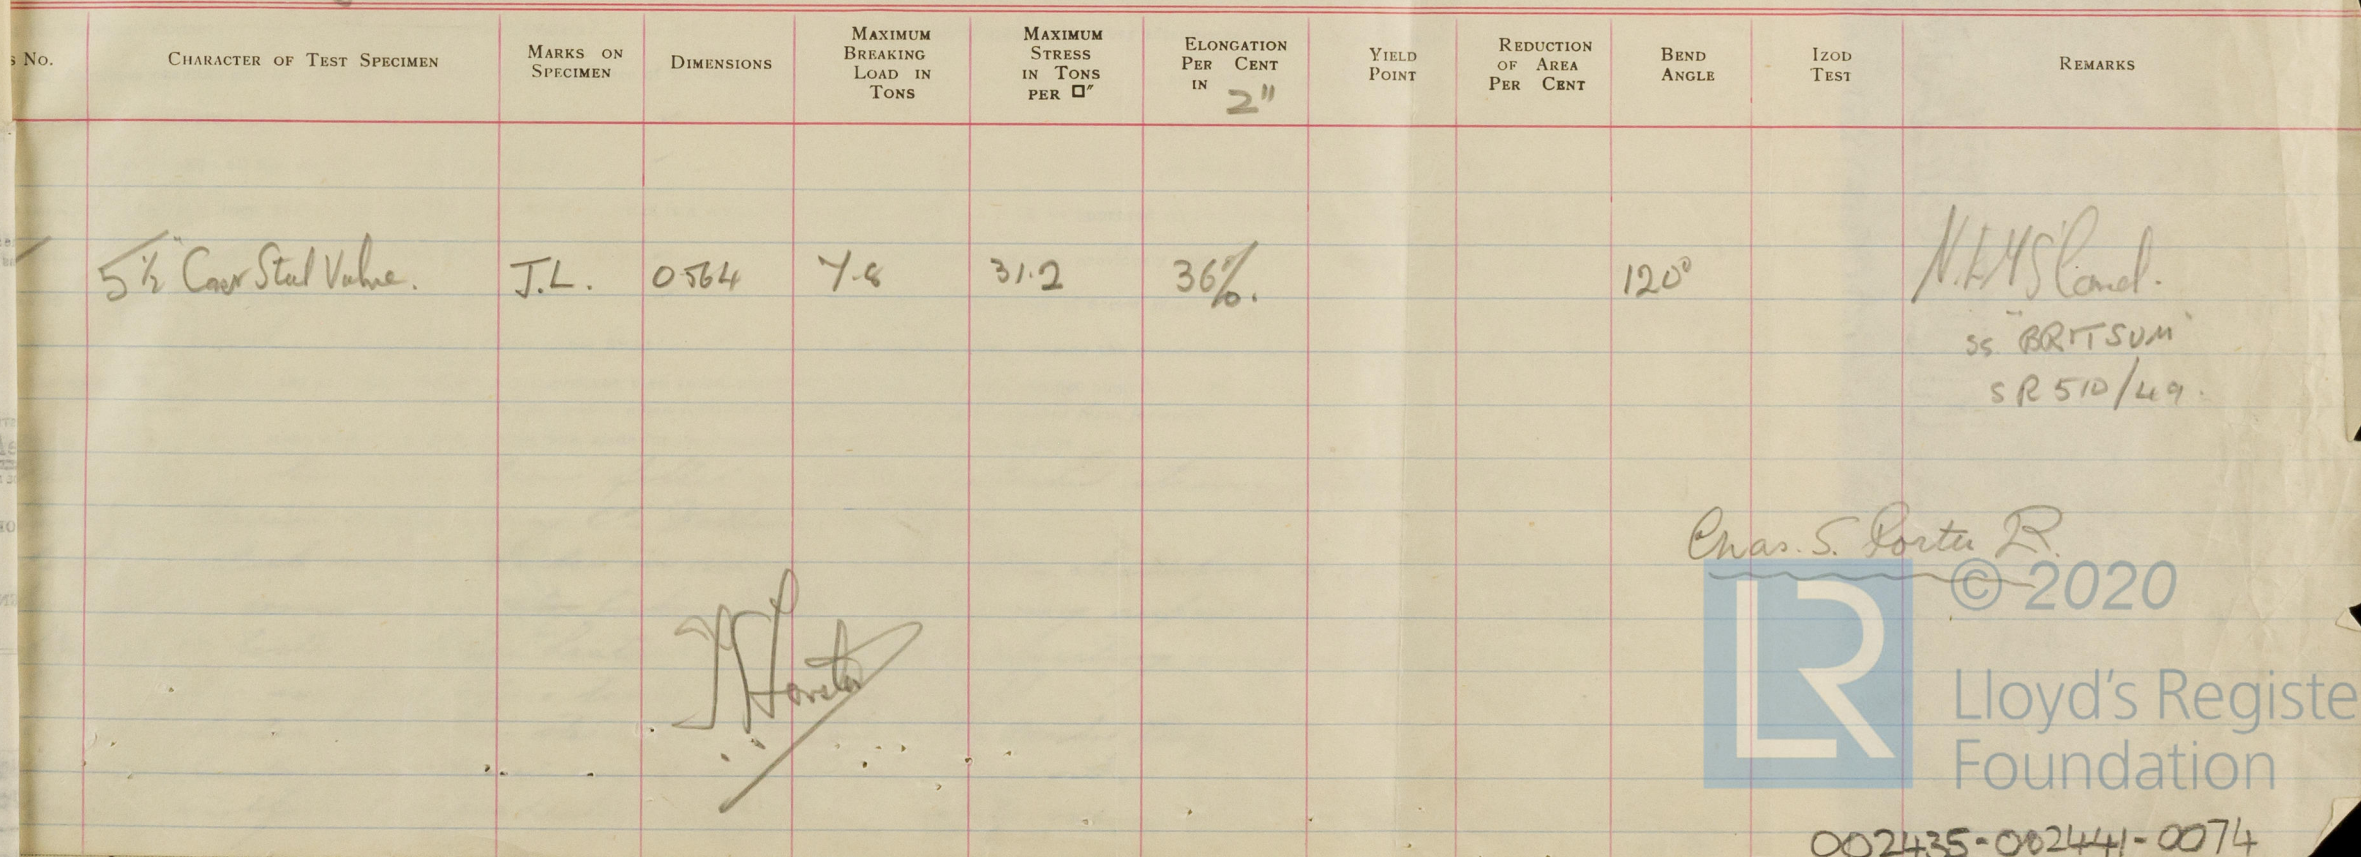 s No.
CHARACTER OF TEST SPECIMEN
MARKS ON
SPECIMEN
DIMENSIONS
MAXIMUM
BREAKING
LOAD IN
TONS
MAXIMUM
STRESS
IN TONS
PER □"
ELONGATION
PER CENT
IN 2"
YIELD
POINT
REDUCTION
OF AREA
PER CENT
BEND
ANGLE
IZOD
TEST
REMARKS
5½" Cast Steel Valve. J.L. 0564 7.8 31.2 36%. 120°
ss "BRITSUM"
SR 510/49.
Chas. S. Porter
© 2020
LR
Lloyd's Registe
Foundation
002435-002441-0074